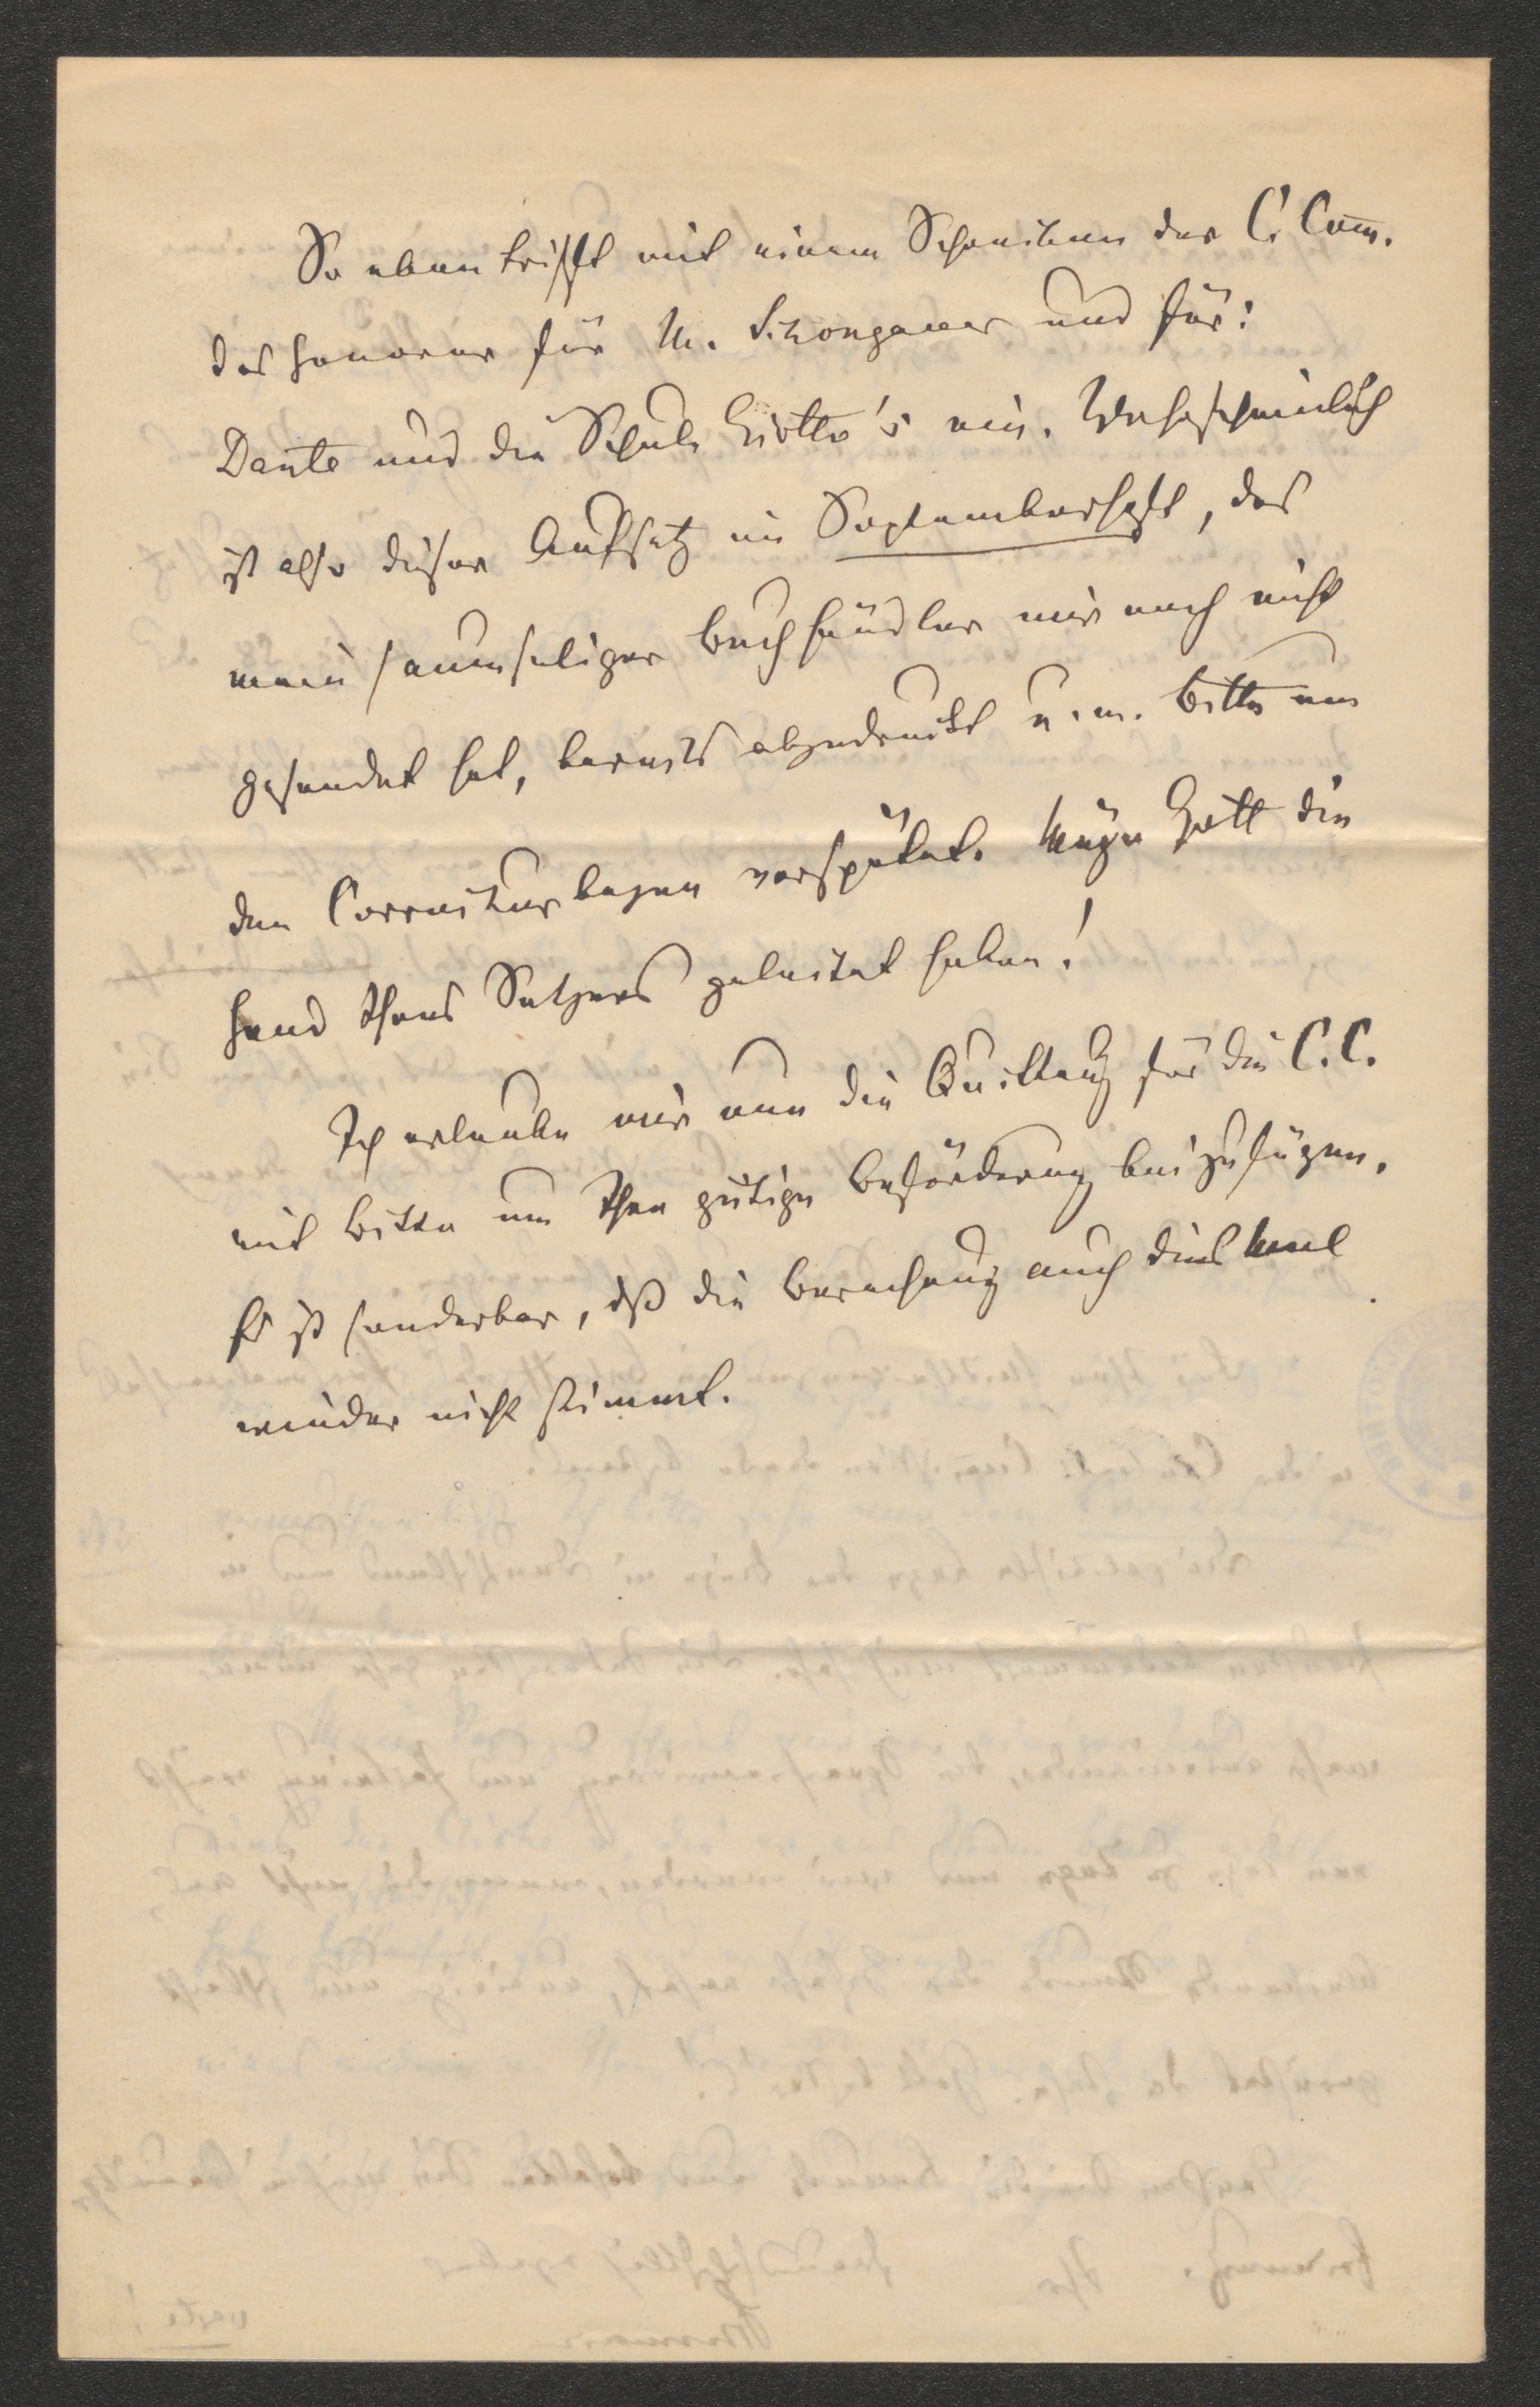 So eben trifft mit einem Schreiben der C. Com̅.
das Honorar für M. Schongauer und für:
Dante und die Schule Giotto's ein. Wahrscheinlich
ist also dieser Aufsatz im Septemberheft, das
mein saumseliger Buchhändler mir noch nicht
gesendet hat, bereits abgedruckt u. m. Bitte um
den Correcturbogen verspätet. Möge Gott die
Hand Ihres Setzers geleitet haben!
Ich erlaube mir nun die Quittung für die C. C.
mit Bitte um Ihre gütige Beförderung beizufügen.
Es ist sonderbar, daß die Berechnung auch dies Mal
wieder nicht stimmt.